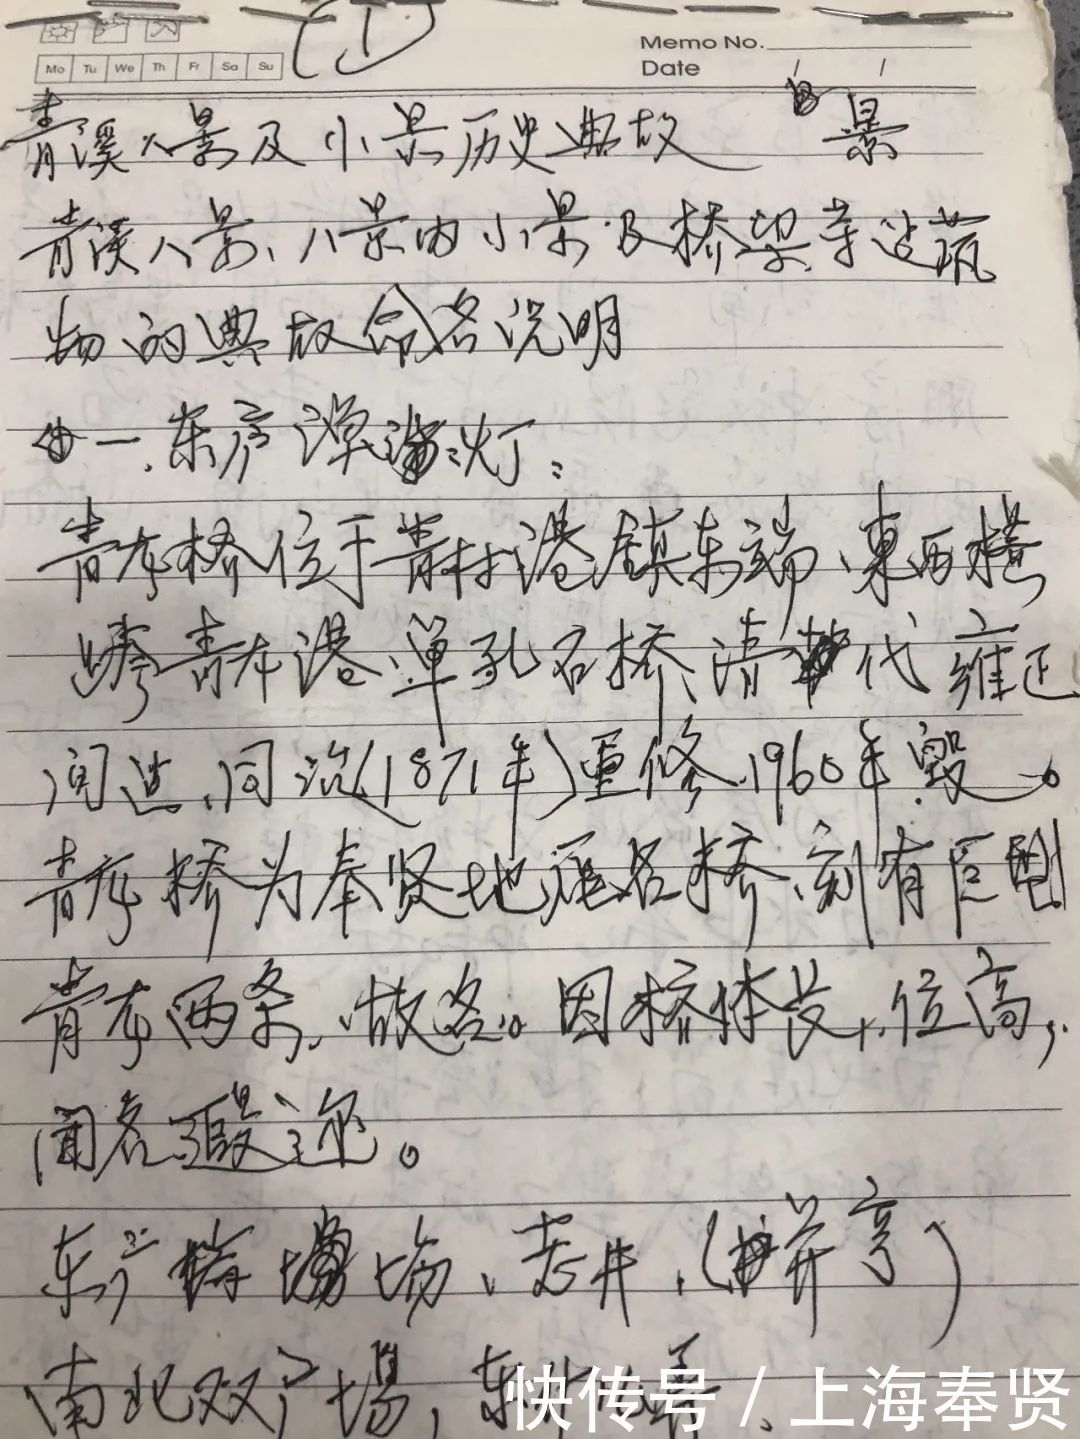 ①
Memo No.
Mo Tu We Th Fr Sa Su
Date / /
青溪八景及小景历史典故 景
青溪八景、八景内小景及桥梁等建筑
物的典故命名说明
一、东 灯:
青龙桥位于青村港镇东端、東西横
跨青龙港、单孔石桥、清代雍正
间造、同治(1871年)重修、1960年毁。
青龙桥为奉贤地区名桥、刻有巨型
青龙两条、故名。因桥体长、位高,
闻名遐迩。
东广场、老井、(井亭)
南北双广場,东
快传号 / 上海奉贤